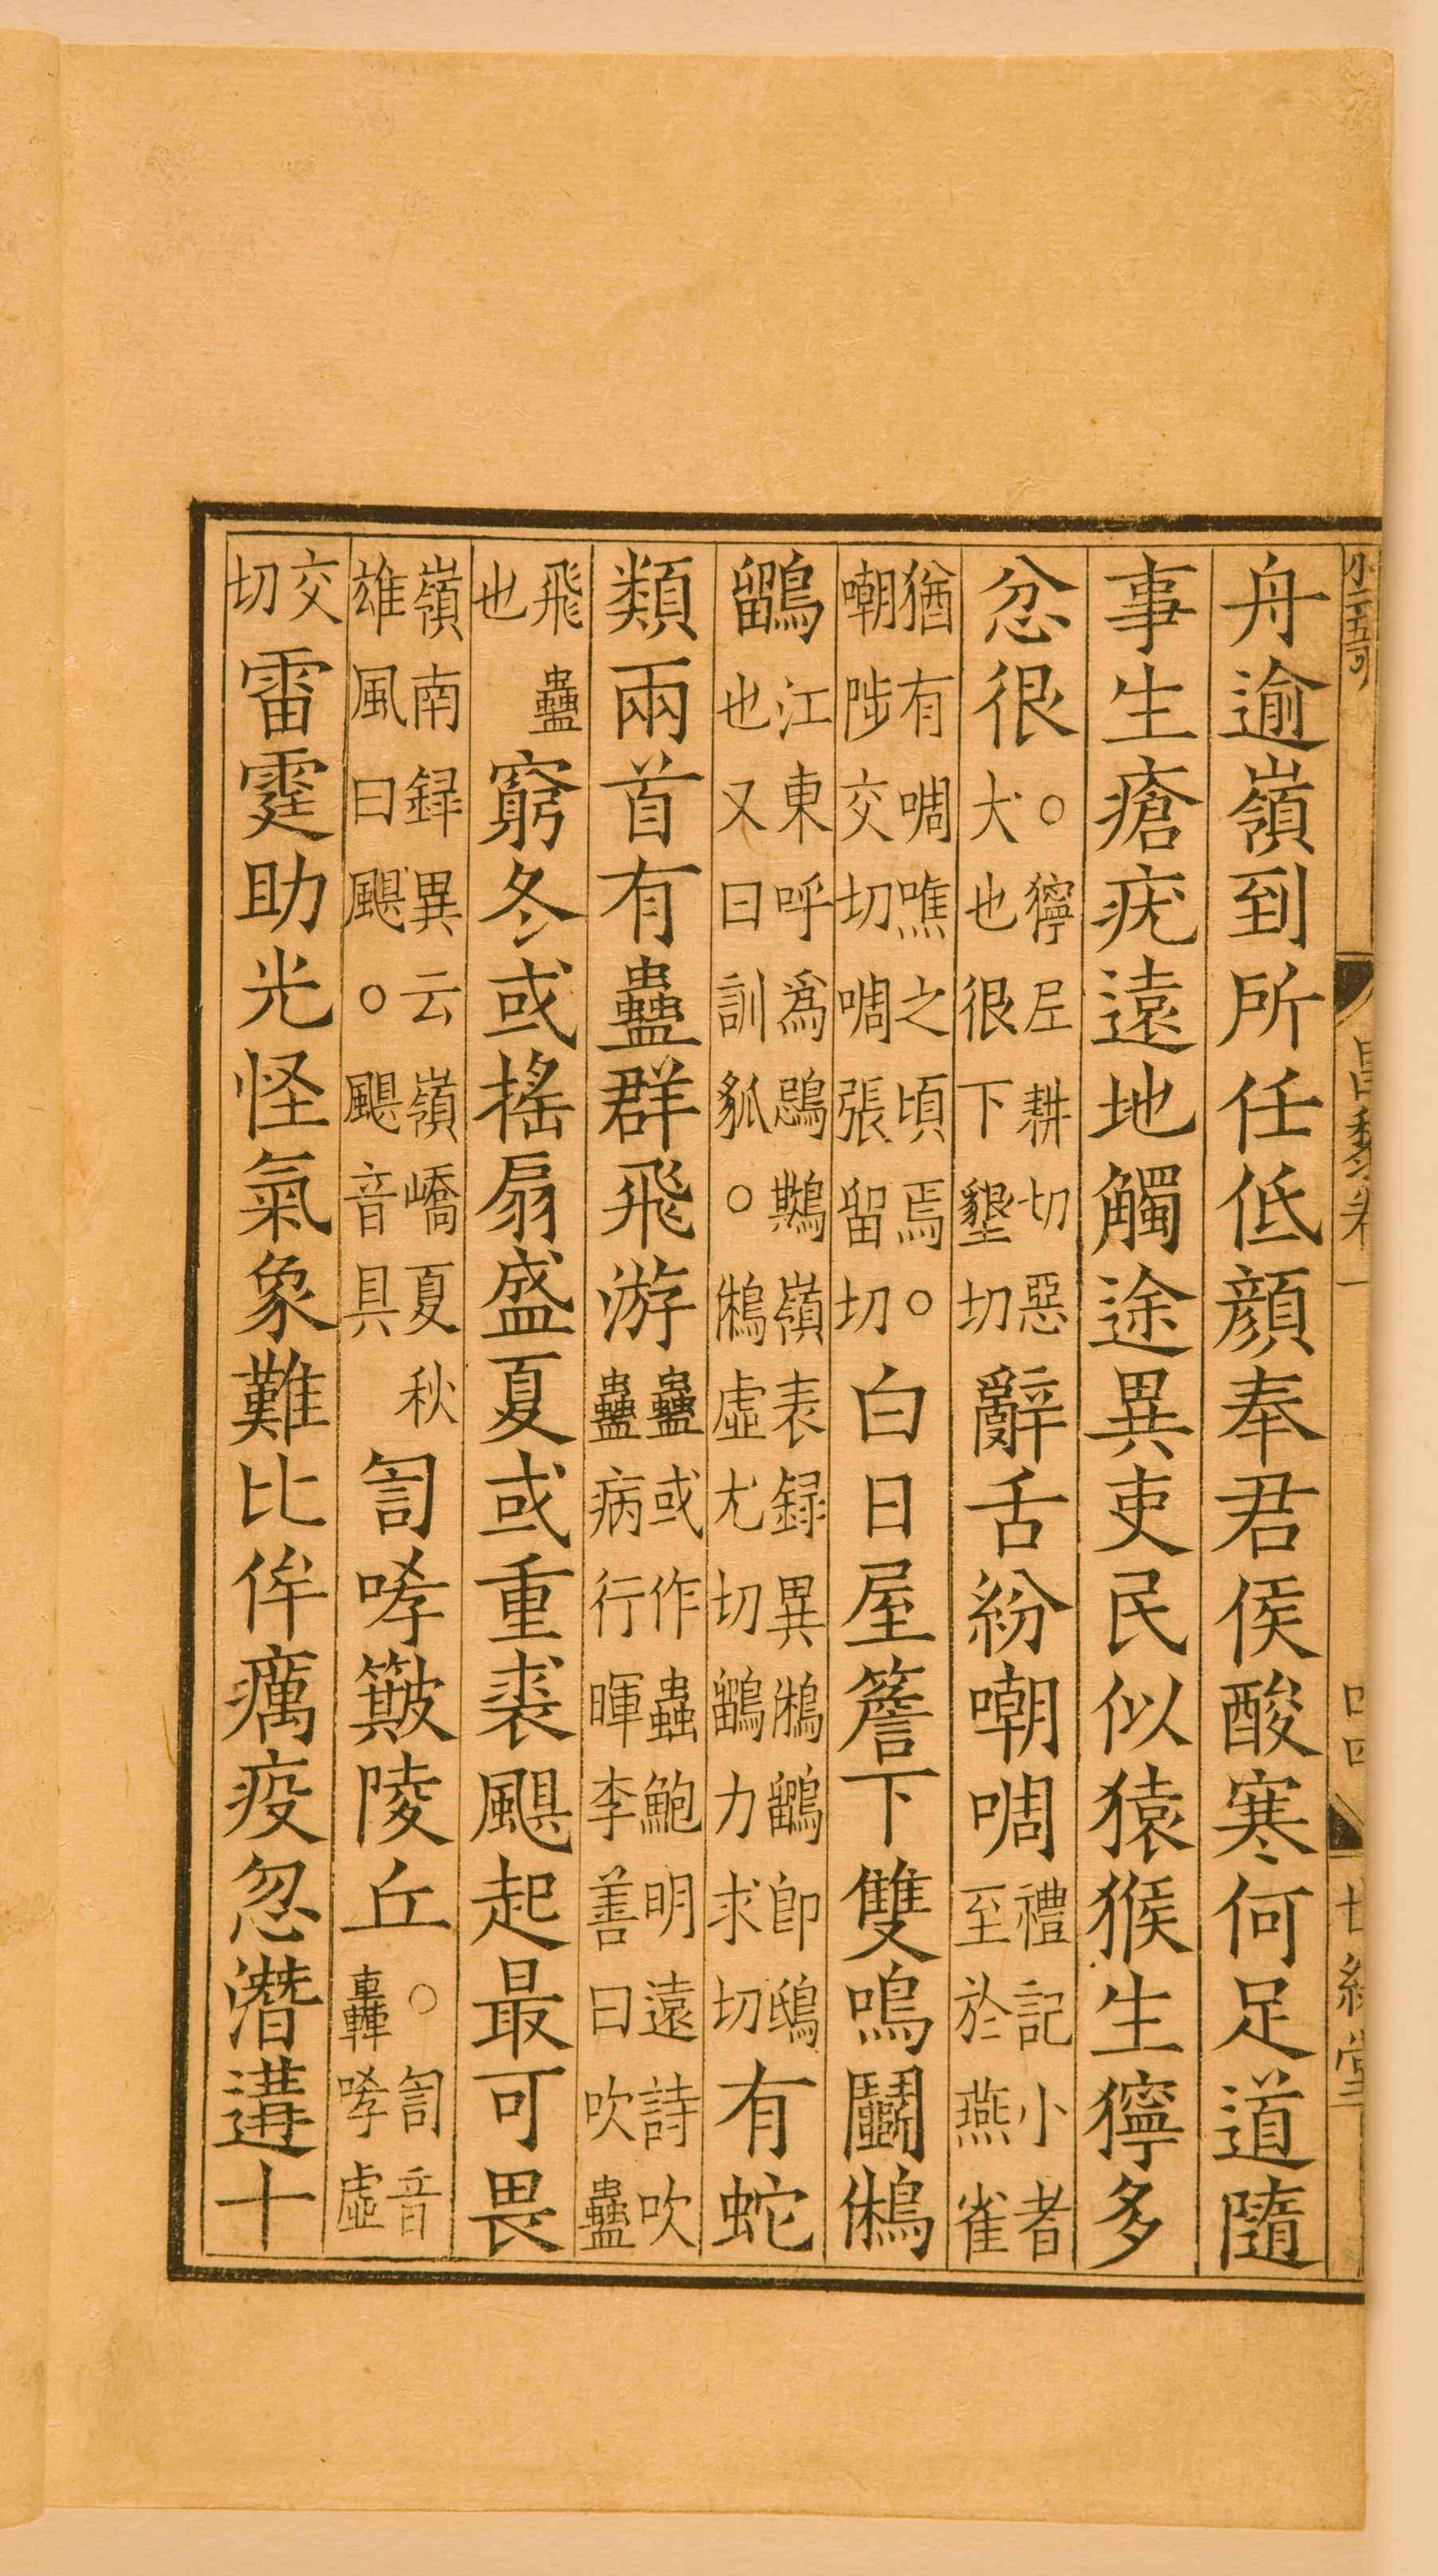 小二百五可　昌黎卷一　世綵堂
舟逾嶺到所任低顔奉君侯酸寒何足道隨
事生瘡疣遠地觸途異吏民似猿猴生獰多
忿很○獰尼耕切惡犬也很下墾切辭舌紛嘲啁禮記小者至於燕雀
猶有啁噍之頃焉○嘲陟交切啁張留切白日屋簷下雙鳴鬭鵂
鶹江東呼爲鵋鶀嶺表録異鵂鶹即鴟也又曰訓狐○鵂虛尤切鶹力求切有蛇
類兩首有蠱群飛游蠱或作蟲鮑明遠詩吹蠱病行暉李善曰吹蠱
飛蠱也窮冬或搖扇盛夏或重裘颶起最可畏
嶺南録異云嶺嶠夏秋雄風曰颶○颶音具訇哮簸陵丘○訇音轟哮虛
交切雷霆助光怪氣象難比侔癘疫忽潛遘十